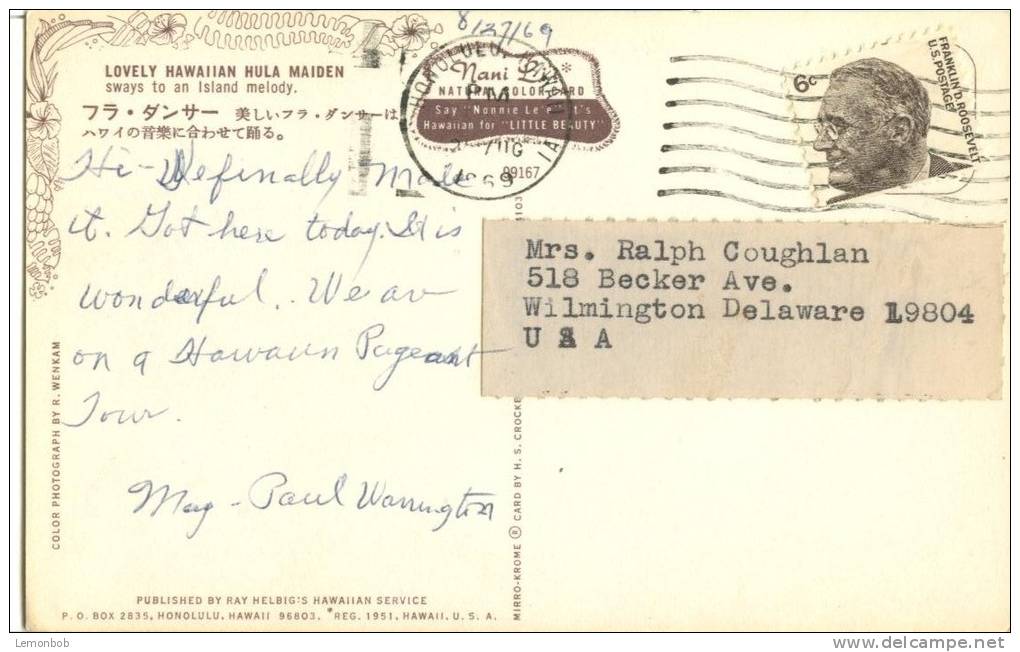 8/27/69
LOVELY HAWAIIAN HULA MAIDEN
sways to an Island melody.
フラ・ダンサー 美しいフラ・ダンサーは
ハワイの音樂に合わせて踊る。
Nani Li'i
NATURAL COLOR CARD
Say "Nonnie Le'e" It's
Hawaiian for "LITTLE BEAUTY"
89167
HONOLULU, HAWAII
PM
AUG
1969
6c
FRANKLIN D. ROOSEVELT
U.S. POSTAGE
Hi - We finally made
it. Got here today. It is
wonderful. We are
on a Hawaiin Pageant
Tour.
May - Paul Warrington
Mrs. Ralph Coughlan
518 Becker Ave.
Wilmington Delaware 19804
U S A
COLOR PHOTOGRAPH BY R. WENKAM
MIRRO-KROME ® CARD BY H. S. CROCKE
PUBLISHED BY RAY HELBIG'S HAWAIIAN SERVICE
P. O. BOX 2835, HONOLULU, HAWAII 96803. *REG. 1951, HAWAII, U. S. A.
Lemonbob
www.delcampe.net